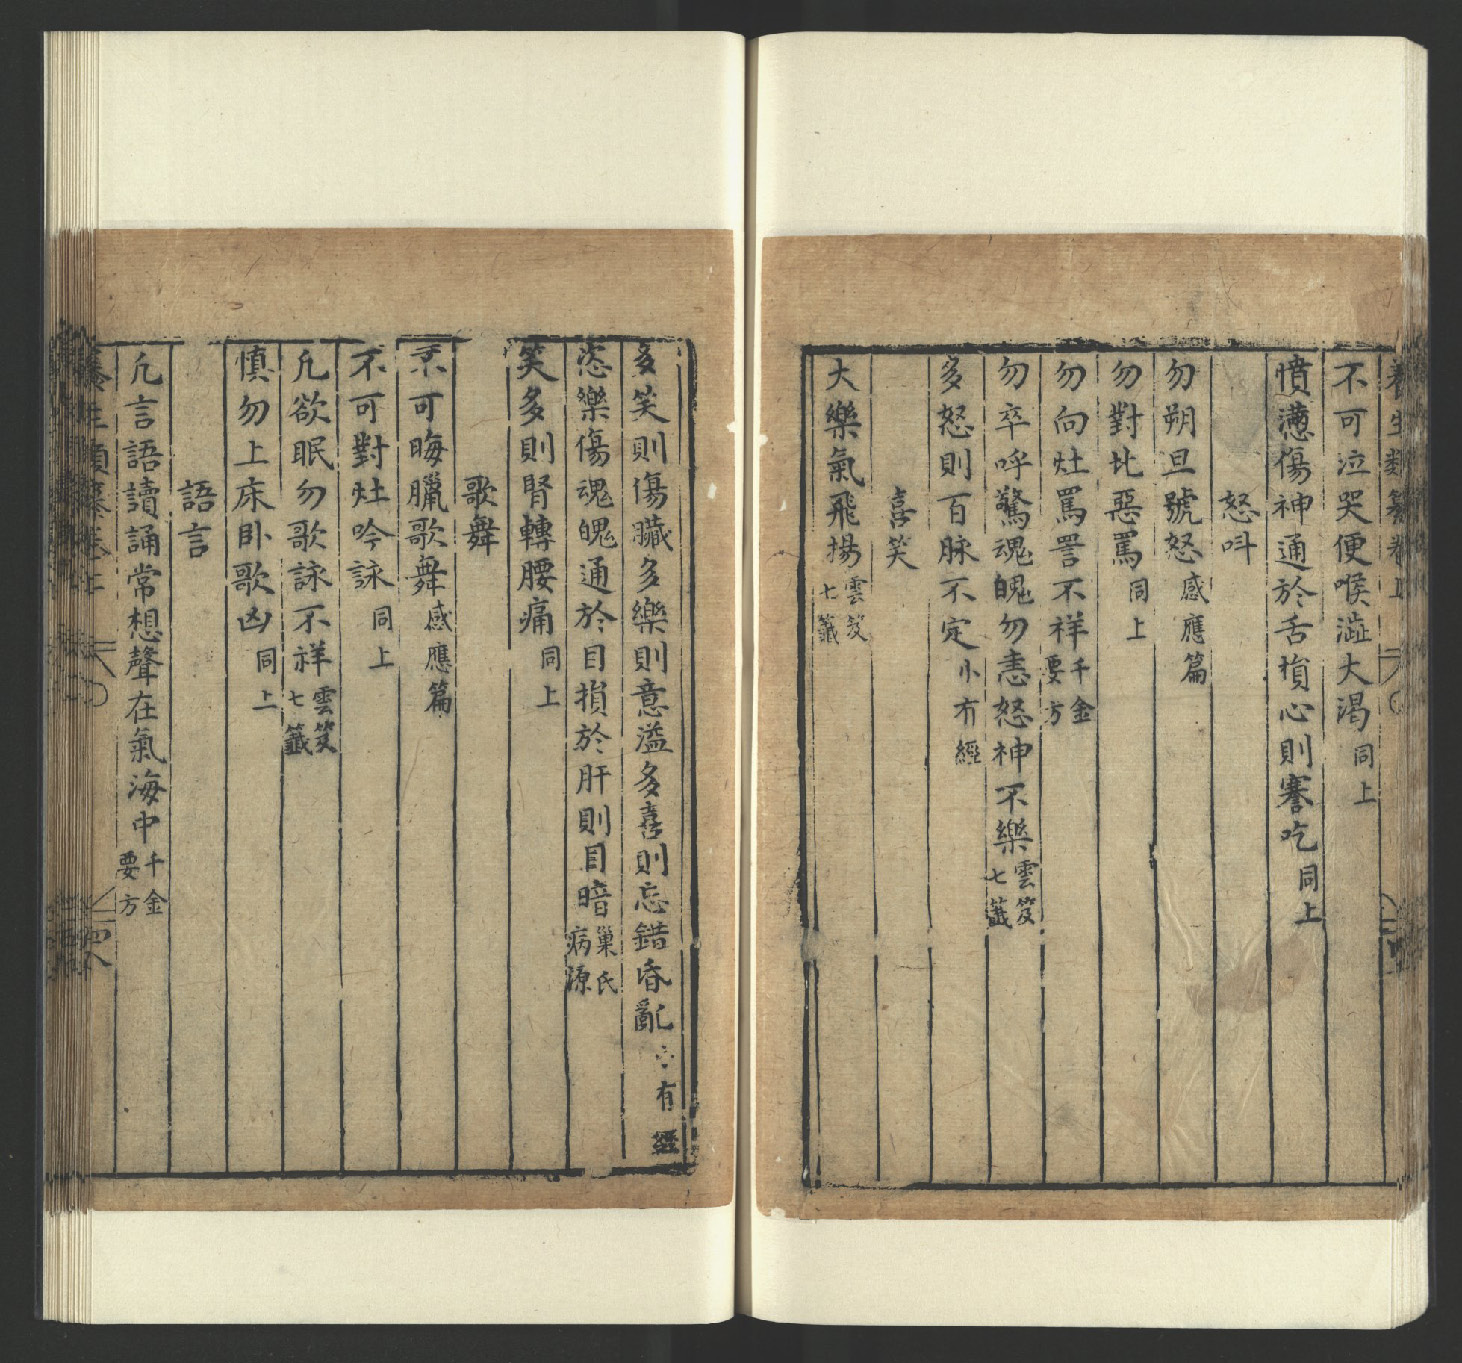 養生類纂卷上
不可泣哭便喉澁大渴同上
憤懣傷神通於舌損心則謇吃同上
怒叫
勿朔旦號怒感應篇
勿對北惡罵同上
勿向灶罵詈不祥千金要方
勿卒呼驚魂魄勿恚怒神不樂雲笈七籤
多怒則百脉不定小有經
喜笑
大樂氣飛揚雲笈七籤
多笑則傷臟多樂則意溢多喜則忘錯昏亂小有經
恣樂傷魂魄通於目損於肝則目暗巢氏病源
笑多則腎轉腰痛同上
歌舞
不可晦臘歌舞感應篇
不可對灶吟詠同上
凡欲眠勿歌詠不祥雲笈七籤
慎勿上床卧歌凶同上
語言
凡言語讀誦常想聲在氣海中千金要方
養生類纂卷上
四八